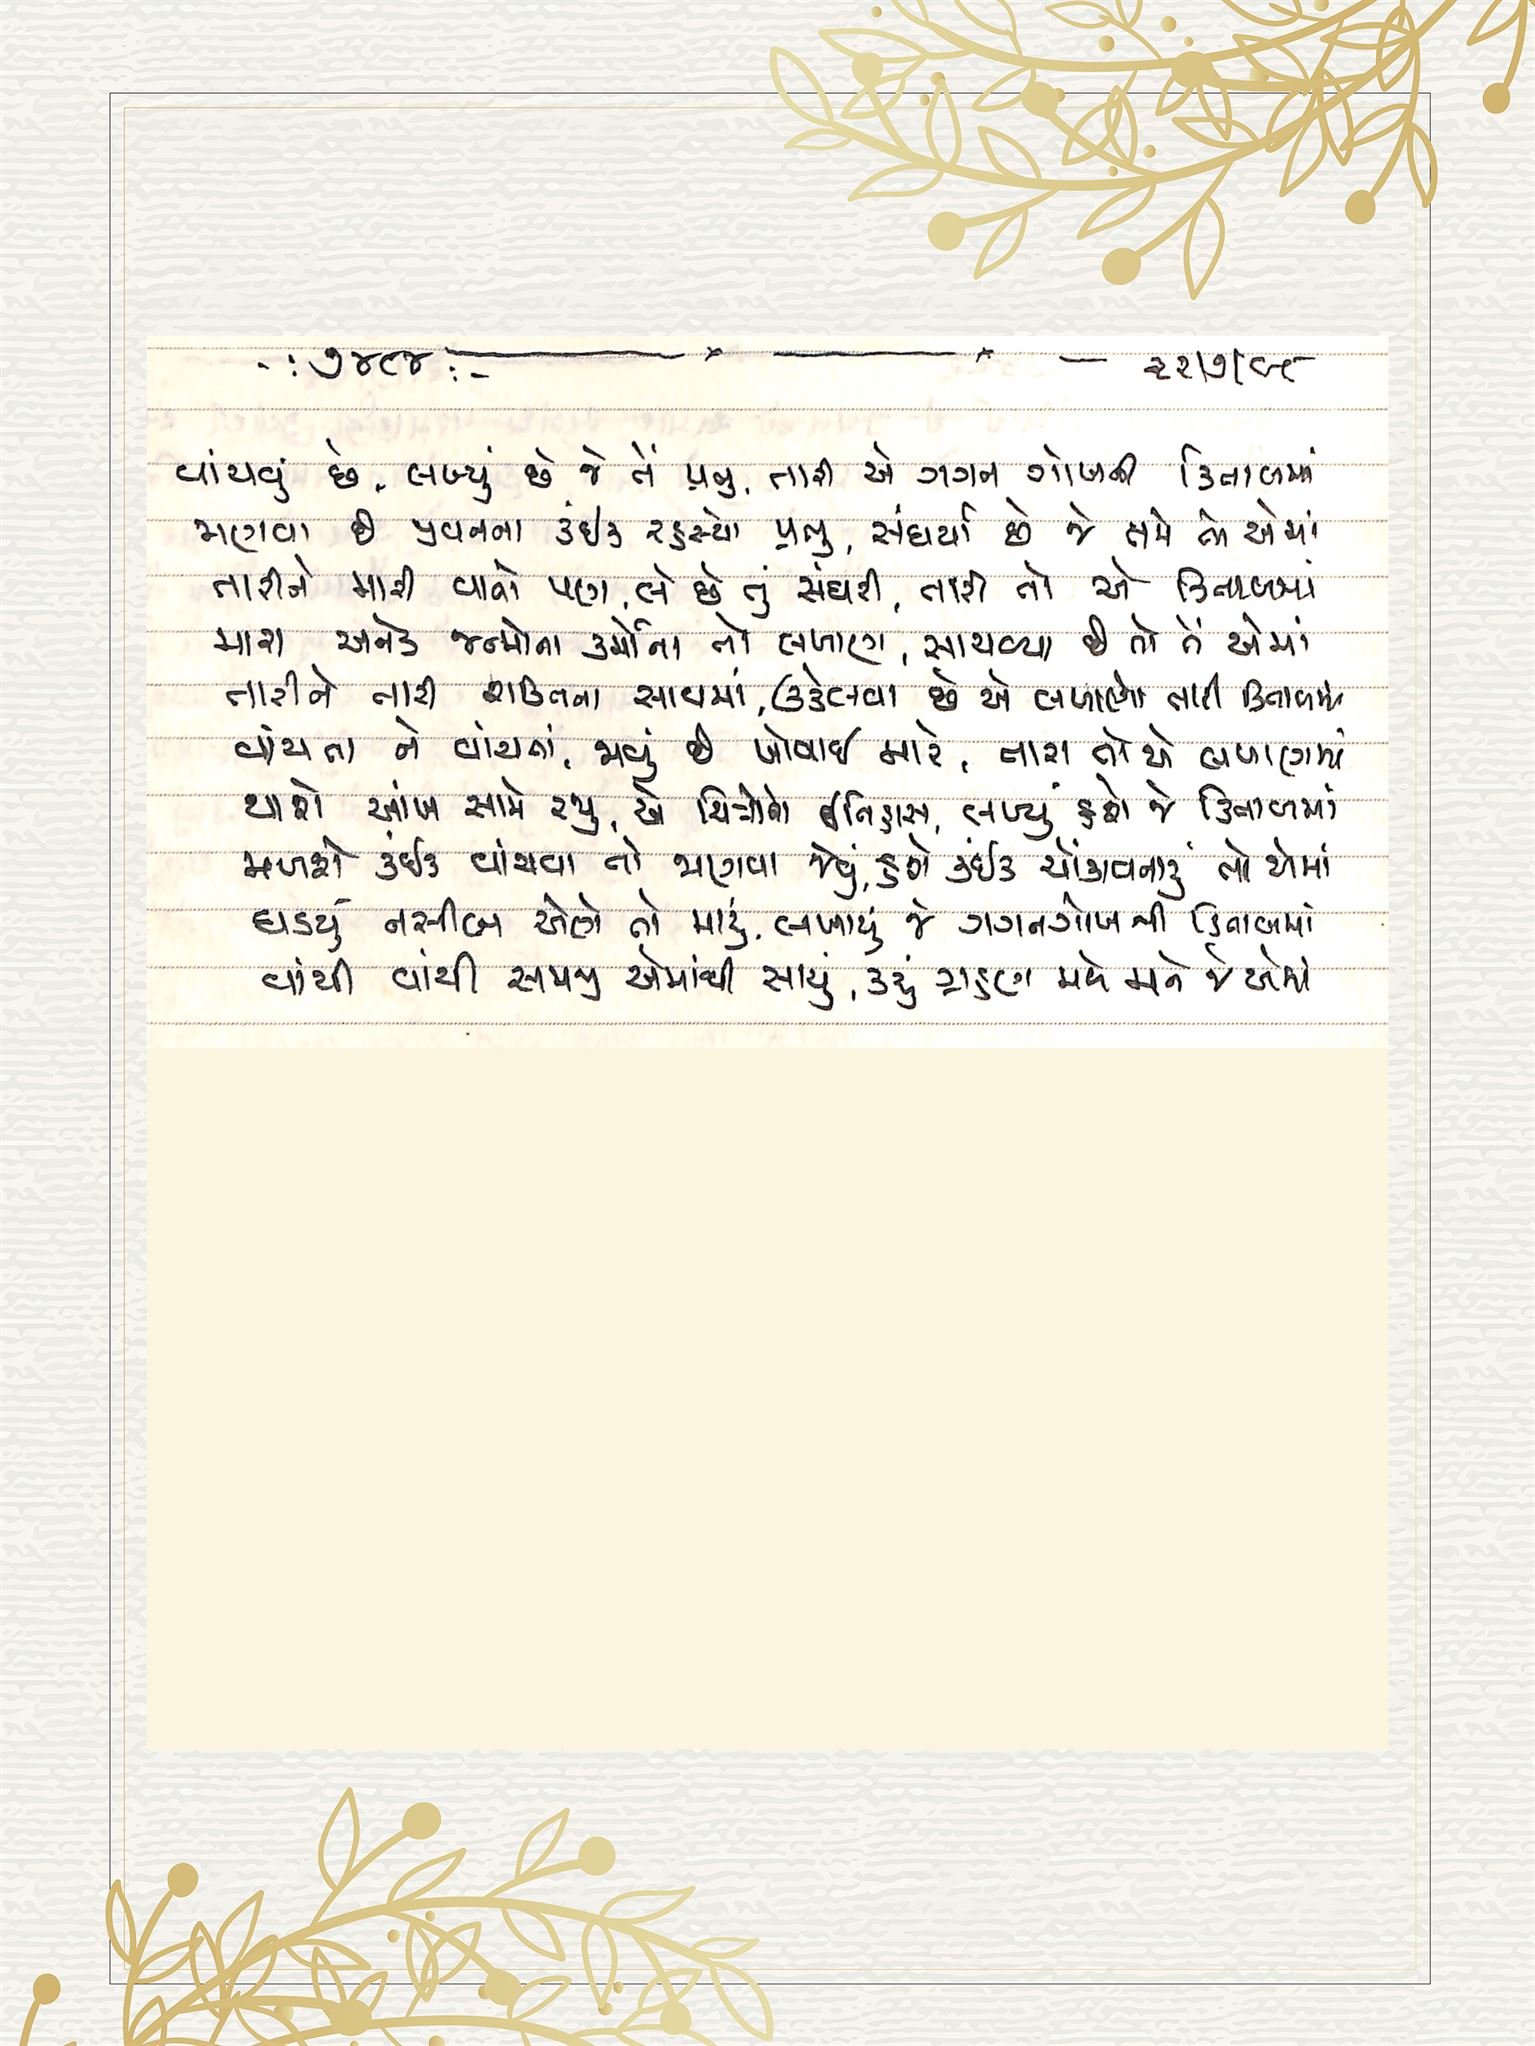 -: ૭૪૯૪ :- ૨૨/૭/૯૮
વાંચવું છે, લખ્યું છે જે તેં પ્રભુ, તારી એ ગગન ગોખની કિતાબમાં
ભણવા છે જીવનના કંઈક રહસ્યો પ્રભુ, સંઘર્યા છે જે તમે તો એમાં
તારીને મારી વાતો પણ, લે છે તું સંઘરી, તારી તો એ કિતાબમાં
મારા અનેક જન્મોના કર્મોના તો લખાણ, સાચવ્યા છે તો તેં એમાં
તારીને તારી શક્તિના સાથમાં, ઉકેલવા છે એ લખાણો તારી કિતાબમાં
વાંચતા ને વાંચતાં, જાવું છે ખોવાઈ મારે, તારા તો એ લખાણમાં
થાશે આંખ સામે રજુ, એ ચિત્રોનો ઇતિહાસ, લખ્યું હશે જે કિતાબમાં
મળશે કંઈક વાંચવા તો ભણવા જેવું, હશે કંઈક ચોંકાવનારું તો એમાં
ઘડયું નસીબ એણે તો મારું, લખાયું જે ગગનગોખની કિતાબમાં
વાંચી વાંચી સમજી એમાંથી સાચું, કરું ગ્રહણ મળે મને જે એમાં